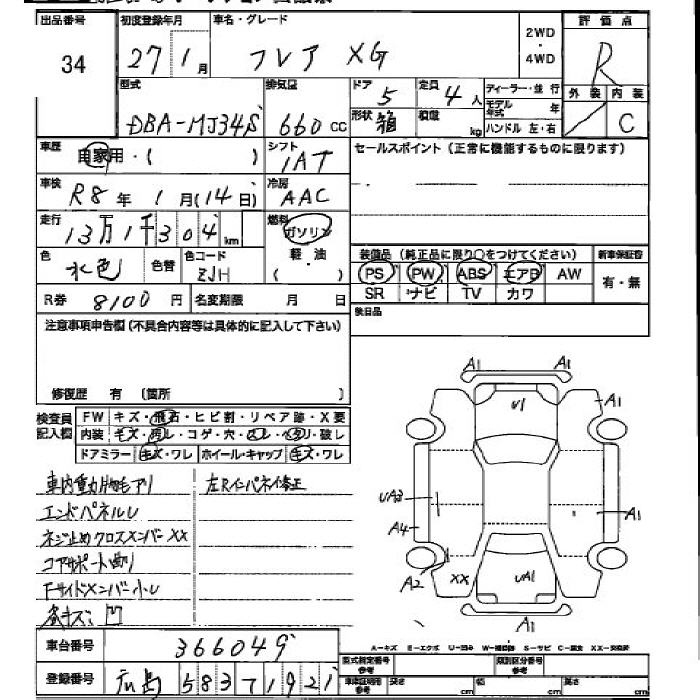 出品番号 初度登録年月 車名・グレード 評価点
34 27 1月 フレア XG 2WD・4WD R
型式 排気量 ドア 定員 ディーラー・並行 外装 内装
DBA-MJ34S 660cc 5 4人 モデル年式 年 C
形状 箱 積載 kg ハンドル 左・右
車歴 自家用・( ) シフト 1AT セールスポイント(正常に機能するものに限ります)
車検 R8年1月(14日) 冷房 AAC
走行 13万1千304km 燃料 ガソリン
軽・油
( )
色 水色 色替 色コード ZJH
装備品(純正品に限り○をつけてください) 新車保証書
PS PW ABS エアB AW 有・無
SR ナビ TV カワ
R券 8100円 名変期限 月 日 後日品
注意事項申告欄(不具合内容等は具体的に記入して下さい)
修復歴 有 〔箇所 〕
検査員記入欄 FW キズ・飛石・ヒビ割・リペア跡・X要
内装 キズ・汚レ・コゲ・穴・ 破レ
ドアミラー キズ・ワレ ホイール・キャップ キズ・ワレ
エンドパネルU
ネジ止めクロスメンバーXX
コアサポート曲り
FサイドメンバーU
A1 A1
U1 A1
UA3
A4 A1
A2 XX UA1
車台番号 366049
A−キズ E−エクボ U−凹み
登録番号 広島 583 71921
型式指定番号参考 類別区分番号参考
長さ cm 幅 cm 高さ cm